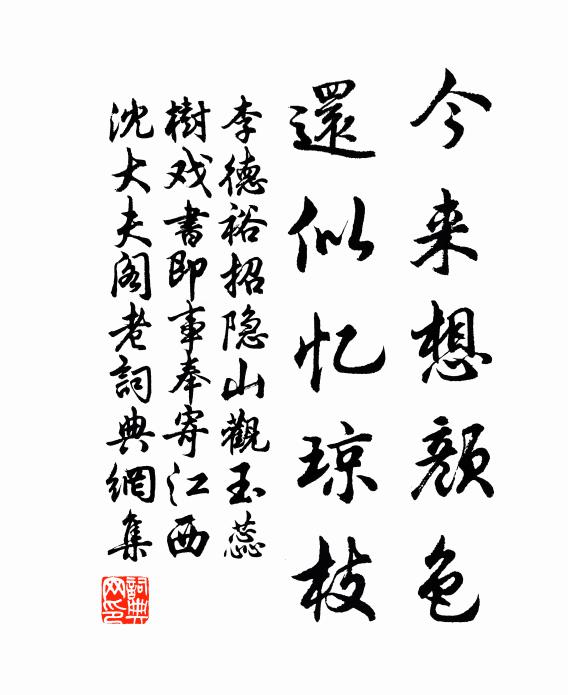 今来想颜色
還似忆琼枝
李德裕招隐山觀玉蕊
樹戏書即事奉寄江西
沈大夫阁老詞典網集